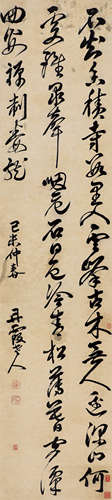 不知香積寺數里入雲峰古木無人徑深山何
處鐘泉聲咽危石日色冷青松薄暮空潭
曲安禪制毒龍
己未仲春
丹霞老人